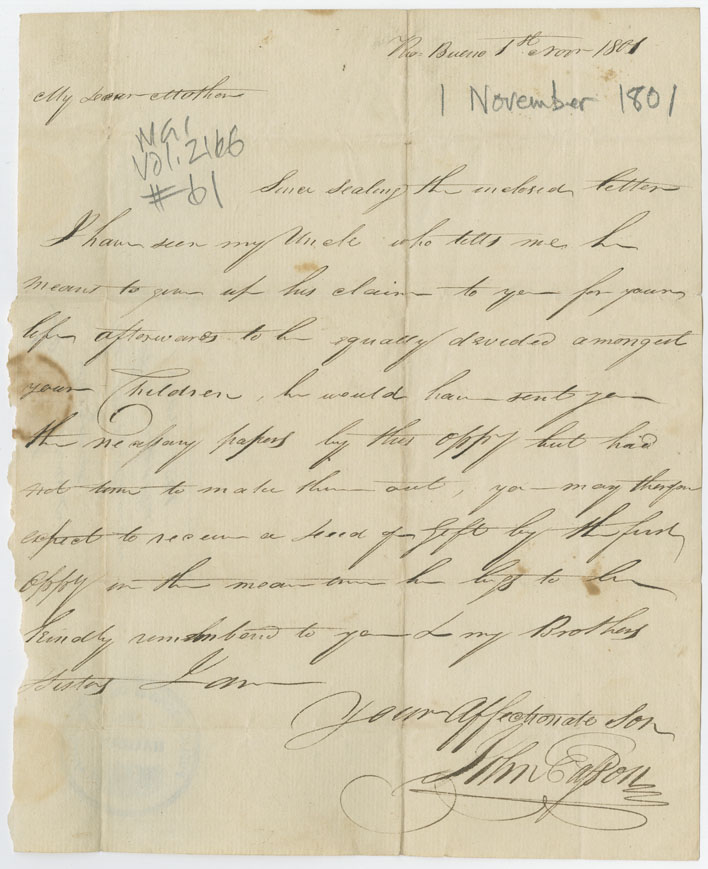 Rio Bueno 1st Novr 1801
My Dear Mother
1 November 1801
Vol. 2166
#61
Since sealing the inclosed letter
I have seen my Uncle who tells me he
means to give up his claim to you for your
life afterwards to be equally devided amongst
your Children, he would have sent you
the necessary papers by this oppy but had
not time to make them out, you may therefore
expect to receive a deed of Gift by the first
oppy in the mean time he begs to be
kindly remembered to you & my Brothers
Sisters I am
Your Affectionate Son
John